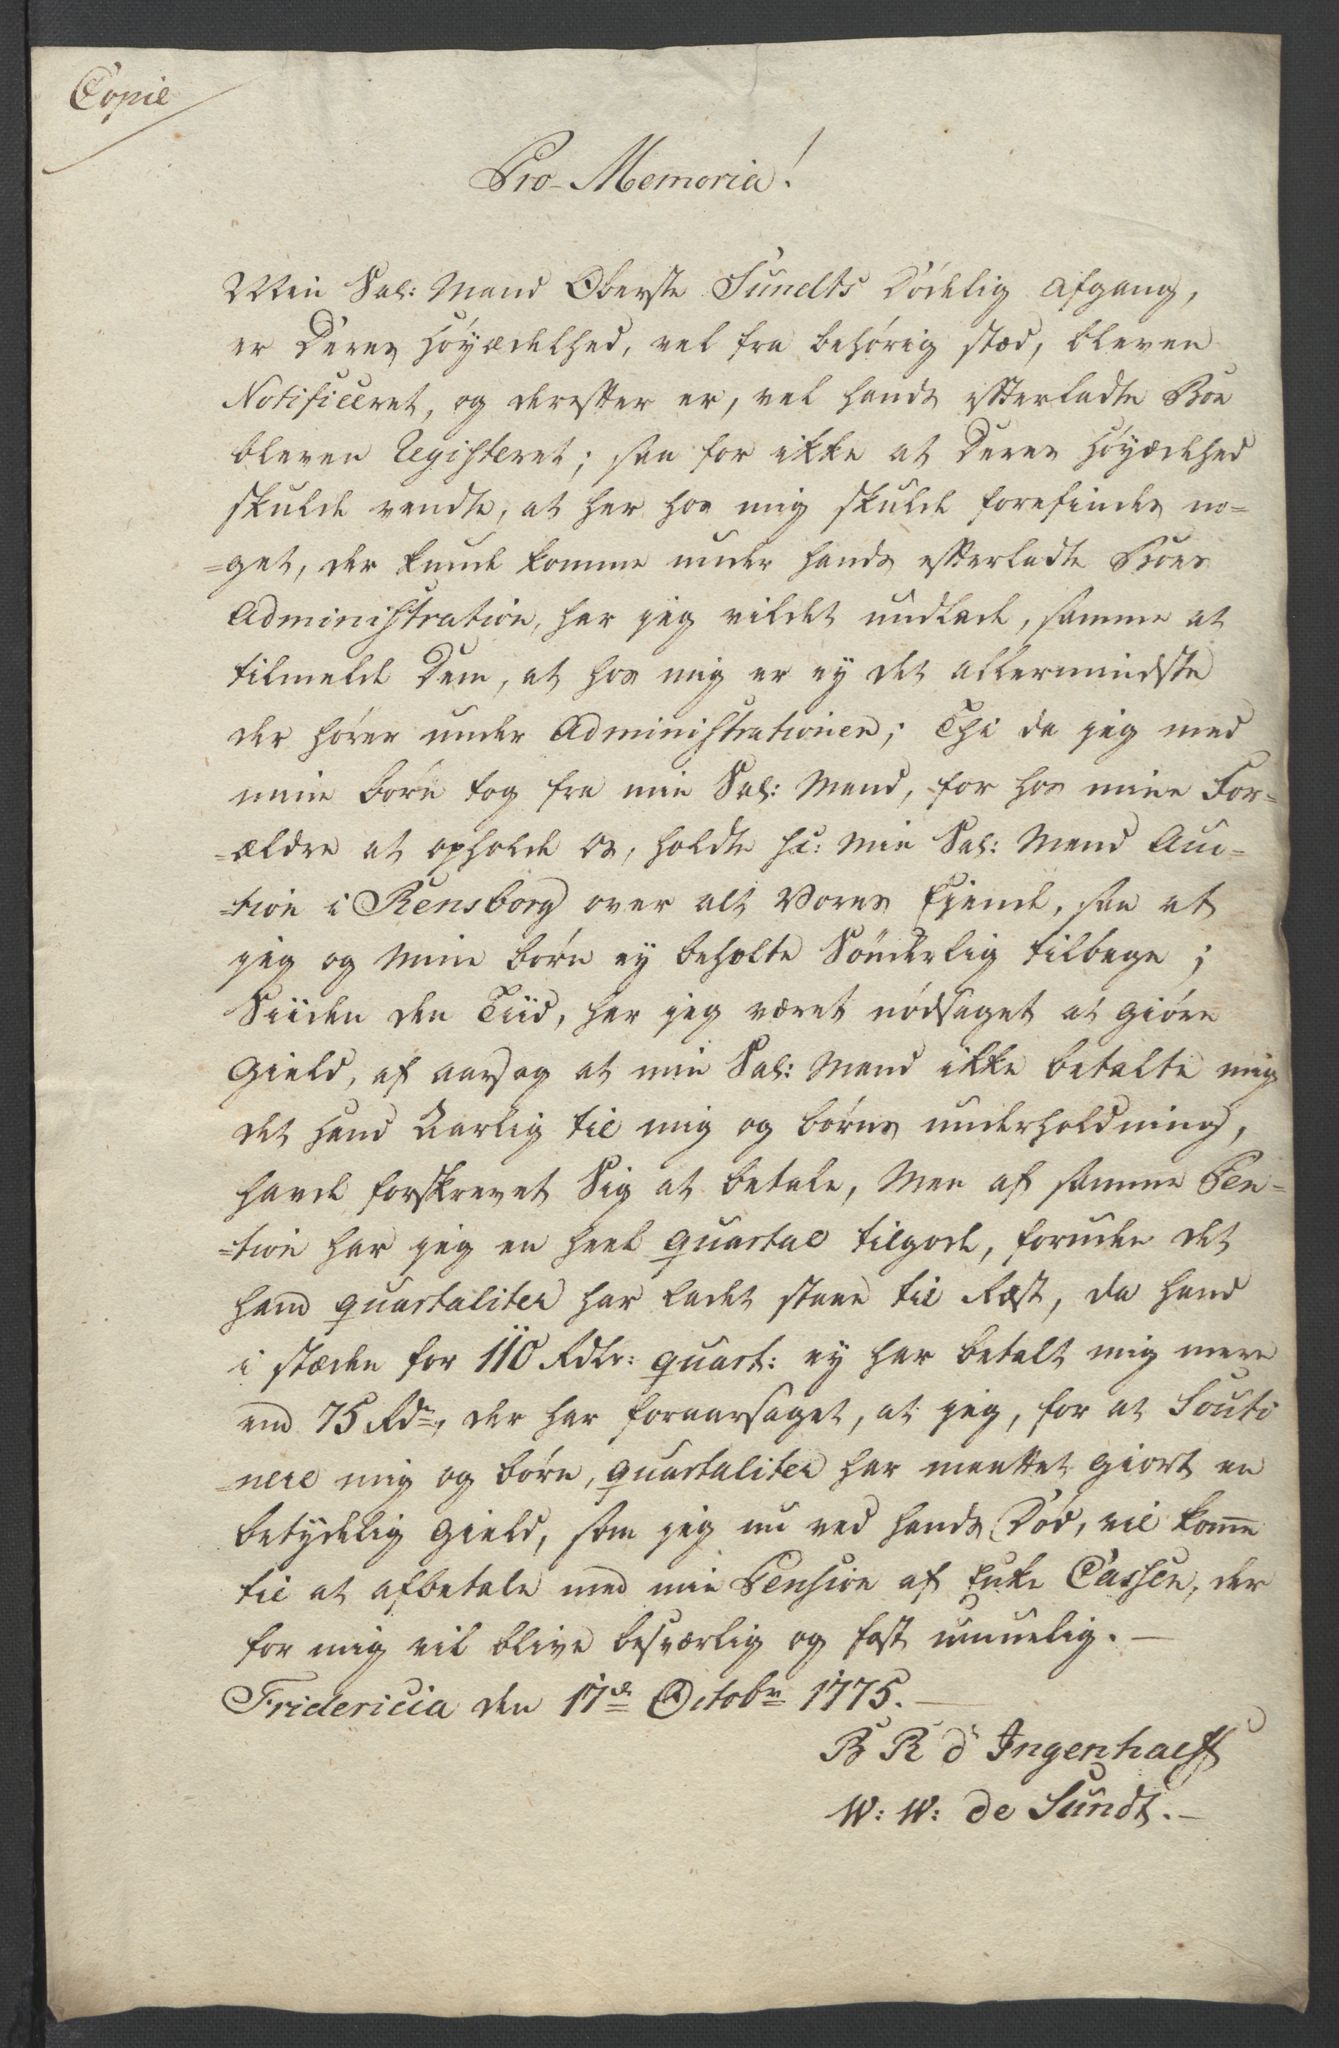 Copie
Pro-Memoria!
Min Sal: Mand Øberste Sundts Dødelig afgang,
er Deres Høyædelhed, vel fra behørig stæd, bleven
Notificeret, og derefter er, vel hands efterladte Boe
bleven Registeret; saa for ikke at Deres Høyædelhed
skulde vendte, at her hos mig skulde forefindes no=
=get, der kunde komme under hands efterladte Boes
Administration, har jeg vildet undlade, samme at
tilmelde Dem, at hos mig er ey det allermindste
der hører under Administrationen; Thi da jeg med
mine børn tog fra min Sal: Mand, for hos mine For=
=ældre at opholde os, holdte hr: min Sal: Mand Auc=
=tion i Rensborg over alt Vores Ejende, saa at
jeg og mine børn ey beholte Sönderlig tilbage;
Siiden den Tiid, har jeg været nødsaget at giöre
Gield, af aarsag at min Sal: Mand ikke betalte mig
det hand Aarlig til mig og børns underholdning,
havde forskrevet Sig at betale, Men af samme Pen=
=tion har jeg en heel quartal tilgode, foruden det
hand quartaliter har ladet staae til Ræst, da hand
i stæden for 110 Rdlr: quart: ey har betalt mig mere
end 75 Rdr, der har foraarsaget, at jeg, for at Souti
=nere mig og børn, quartaliter har maattet giort en
betydelig Gield, som jeg nu ved hands Död, vil komme
til at afbetale med min Pension af Enke Cassen, der
for mig vil blive besværlig og fast umuelig. —
Fridericia den 17de Octobr 1775. —
B R d' Ingenhaeff
W: W: de Sundt. —